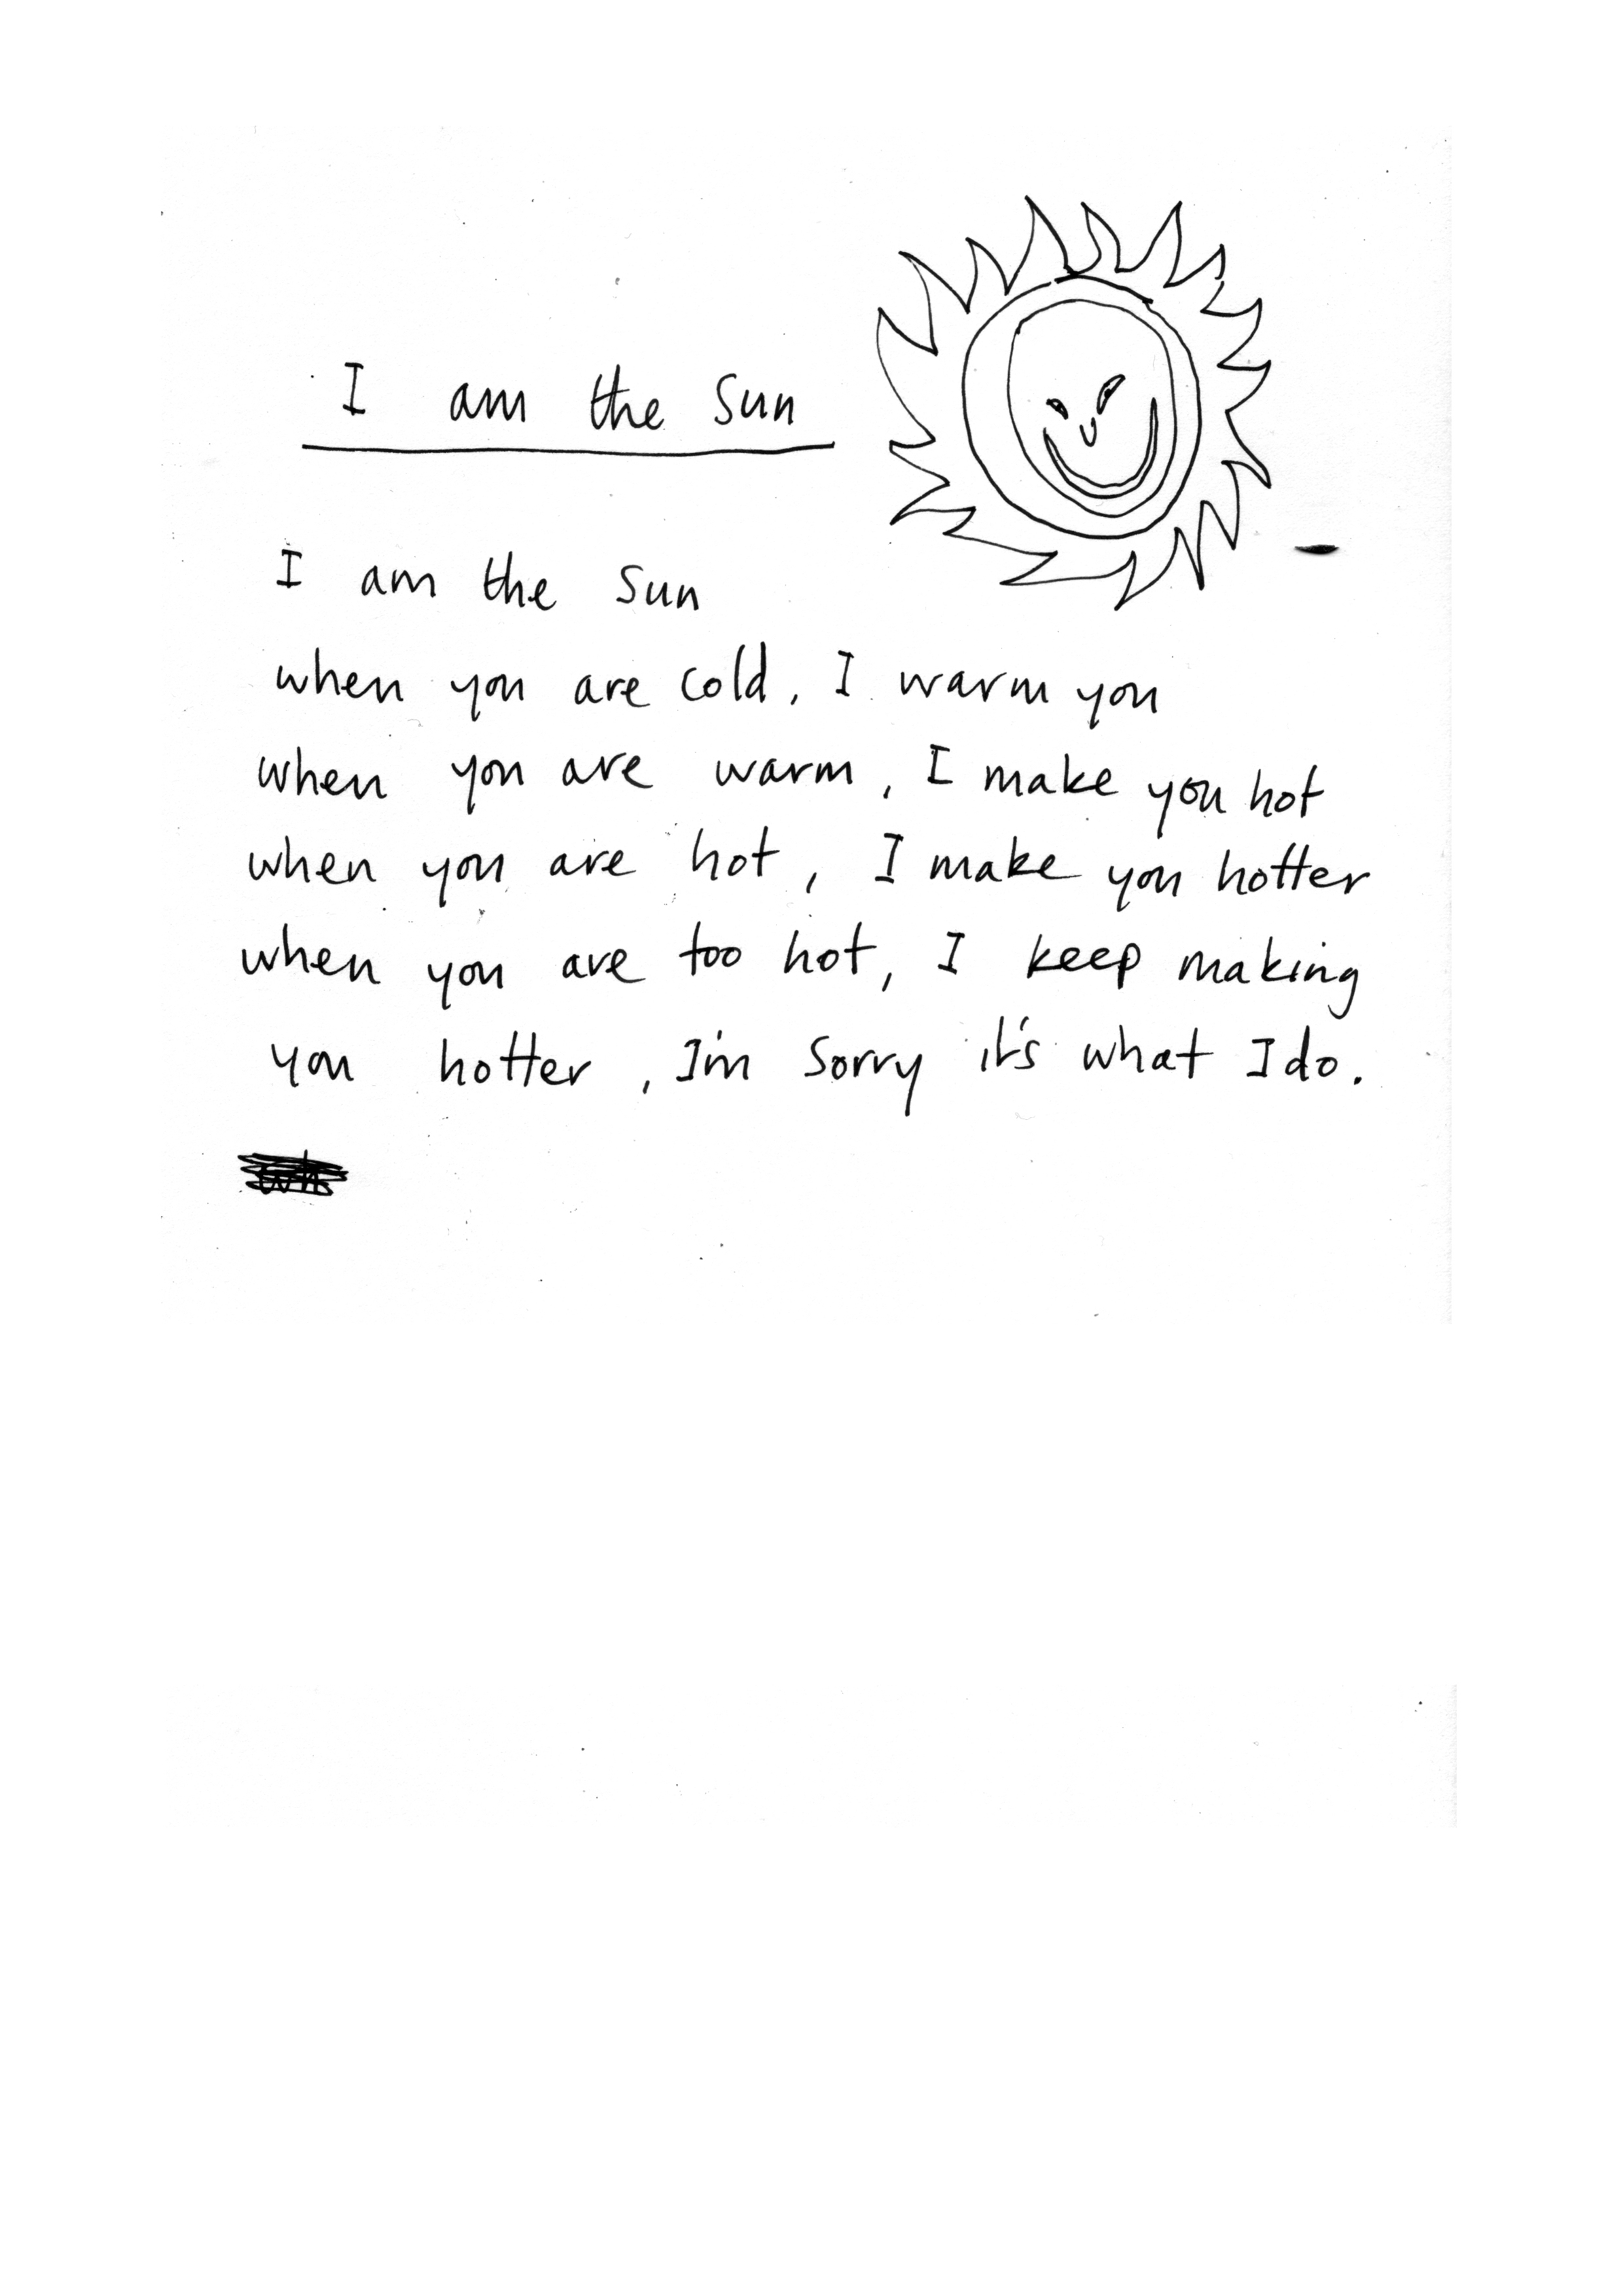 I am the sun
I am the sun
when you are cold, I warm you
when you are warm, I make you hot
when you are hot, I make you hotter
when you are too hot, I keep making
you hotter, I'm sorry it's what I do.